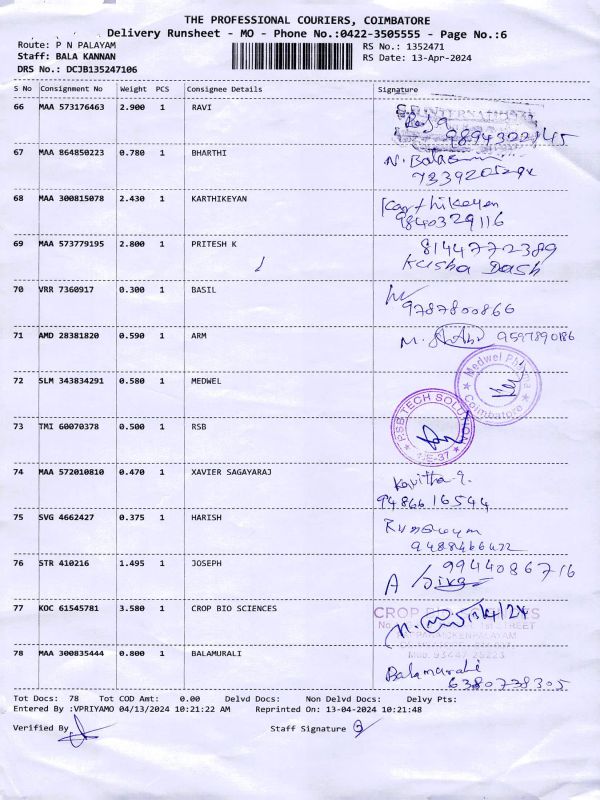 THE PROFESSIONAL COURIERS, COIMBATORE
Delivery Runsheet - MO - Phone No.:0422-3505555 - Page No.:6
Route: P N PALAYAM RS No.: 1352471
Staff: BALA KANNAN RS Date: 13-Apr-2024
DRS No.: DCJB135247106
S No Consignment No Weight PCS Consignee Details Signature
66 MAA 573176463 2.900 1 RAVI
INTERNATIONAL
67 MAA 864850223 0.780 1 BHARTHI
N. Bala
68 MAA 300815078 2.430 1 KARTHIKEYAN Karthikeyan
9840329116
69 MAA 573779195 2.800 1 PRITESH K 8144772389
Kusha Dash
70 VRR 7360917 0.300 1 BASIL
9787800866
71 AMD 28381820 0.590 1 ARM M. 9597890186
72 SLM 343834291 0.580 1 MEDWEL Medwel Pharma
Coimbatore
73 TMI 60070378 0.500 1 RSB RSB TECH SOLUTION
CBE-37
74 MAA 572010810 0.470 1 XAVIER SAGAYARAJ Kavitha
9486616544
75 SVG 4662427 0.375 1 HARISH
9488466472
76 STR 410216 1.495 1 JOSEPH 9944086716
A
77 KOC 61545781 3.580 1 CROP BIO SCIENCES CROP BIO
13/4/24
STREET
Mob: 93447 25223
78 MAA 300835444 0.800 1 BALAMURALI Balamurali
6380738305
Tot Docs: 78 Tot COD Amt: 0.00 Delvd Docs: Non Delvd Docs: Delvy Pts:
Entered By :VPRIYAMO 04/13/2024 10:21:22 AM Reprinted On: 13-04-2024 10:21:48
Verified By Staff Signature